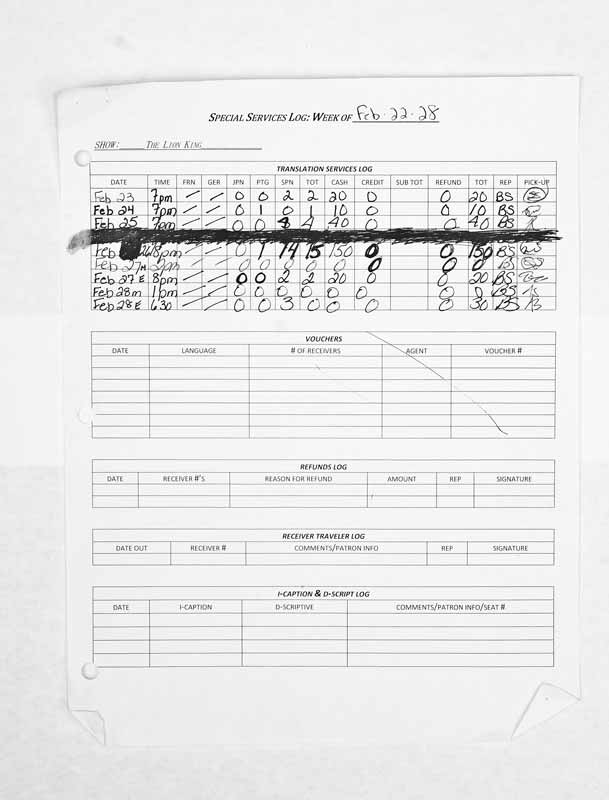 SPECIAL SERVICES LOG: WEEK OF Feb. 22-28
SHOW: THE LION KING
TRANSLATION SERVICES LOG
DATE TIME FRN GER JPN PTG SPN TOT CASH CREDIT SUB TOT REFUND TOT REP PICK-UP
Feb 23 7pm / / 0 0 2 2 20 0 0 20 BS
Feb 24 7pm / / 0 1 0 1 10 0 0 10 BS
Feb 25 7pm / / 0 0 4 40 0 0 40 BS
Feb 26 8pm / / 0 1 14 15 150 0 0 150 BS
Feb 27m 2pm / / 0 0 0 0 0 0 0 0 BS
Feb 27 E 8pm / / 0 0 2 2 20 0 0 20 BS
Feb 28m 1pm / / 0 0 0 0 0 0 0 0 BS
Feb 28 E 6:30 / / 0 0 3 0 0 0 0 30 BS
VOUCHERS
DATE LANGUAGE # OF RECEIVERS AGENT VOUCHER #
REFUNDS LOG
DATE RECEIVER #'S REASON FOR REFUND AMOUNT REP SIGNATURE
RECEIVER TRAVELER LOG
DATE OUT RECEIVER # COMMENTS/PATRON INFO REP SIGNATURE
I-CAPTION & D-SCRIPT LOG
DATE I-CAPTION D-SCRIPTIVE COMMENTS/PATRON INFO/SEAT #